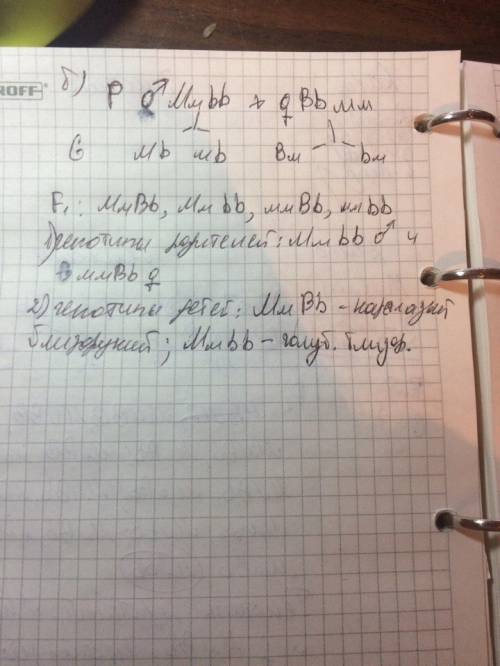 ROFF
б)
P ♂ Mмbb × ♀ Bbмм
G Mb мb Bм bм
F₁: MмBb, Mмbb, ммBb, ммbb
1) генотипы родителей: Mмbb ♂ и
ммBb ♀
2) генотипы детей: MмBb - кареглазый
близорукий; Mмbb - голуб. близор.